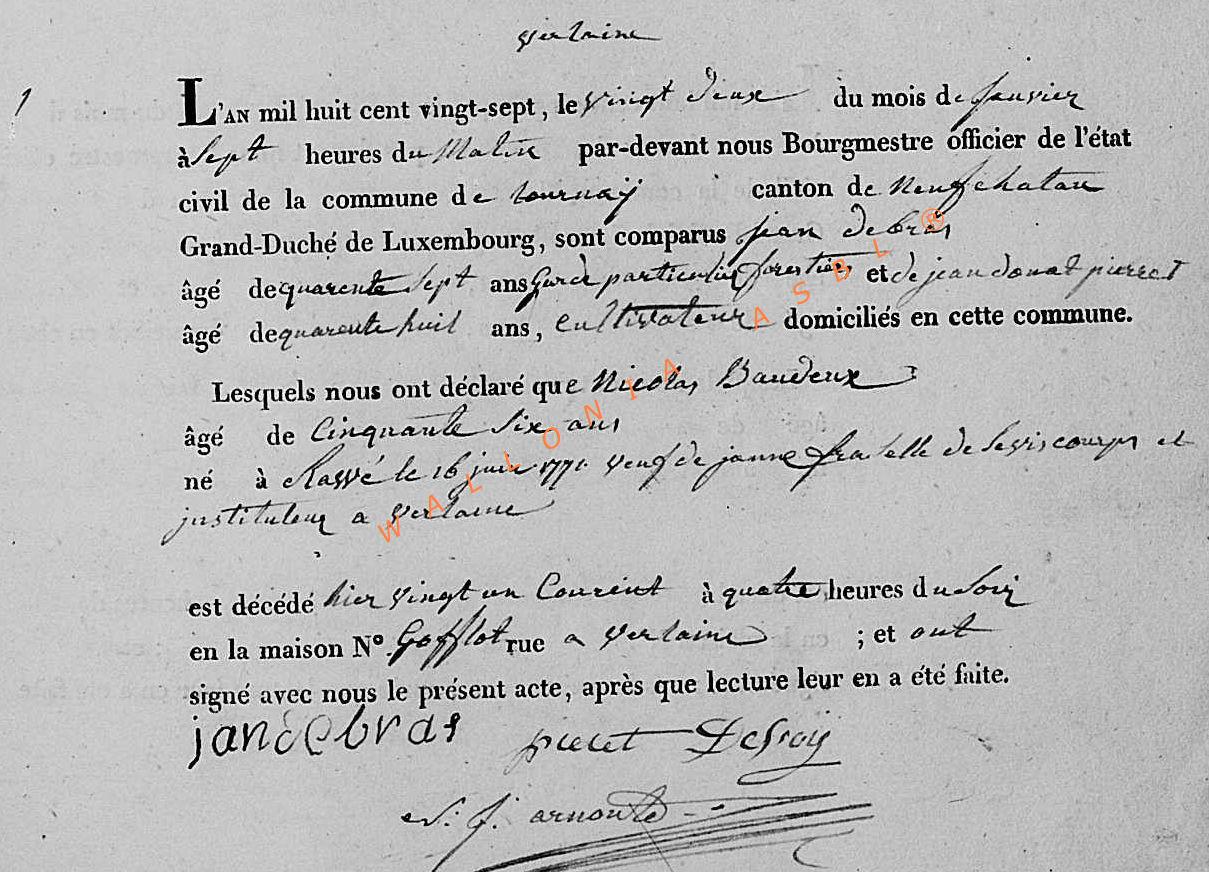 verlaine
1
L'AN mil huit cent vingt-sept, le vingt deux du mois de janvier
à Sept heures du Matin par-devant nous Bourgmestre officier de l'état
civil de la commune de tournaÿ canton de Neufchatau
Grand-Duché de Luxembourg, sont comparus jean debras
âgé de quarente Sept ans garde particulier forestier et de jean donat pierret
âgé de quarente huit ans, Cultivateur domiciliés en cette commune.
Lesquels nous ont déclaré que Nicolas Baudeux
âgé de Cinquante Six ans
né à le 16 juin 1771 veuf de janne de et
instituteur a verlaine
est décédé hier vingt un Courent à quatre heures du Soir
en la maison No. Gofflot rue a verlaine ; et ont
signé avec nous le présent acte, après que lecture leur en a été faite.
jandebras pieret
arnould
WALLONIA ASBL ®